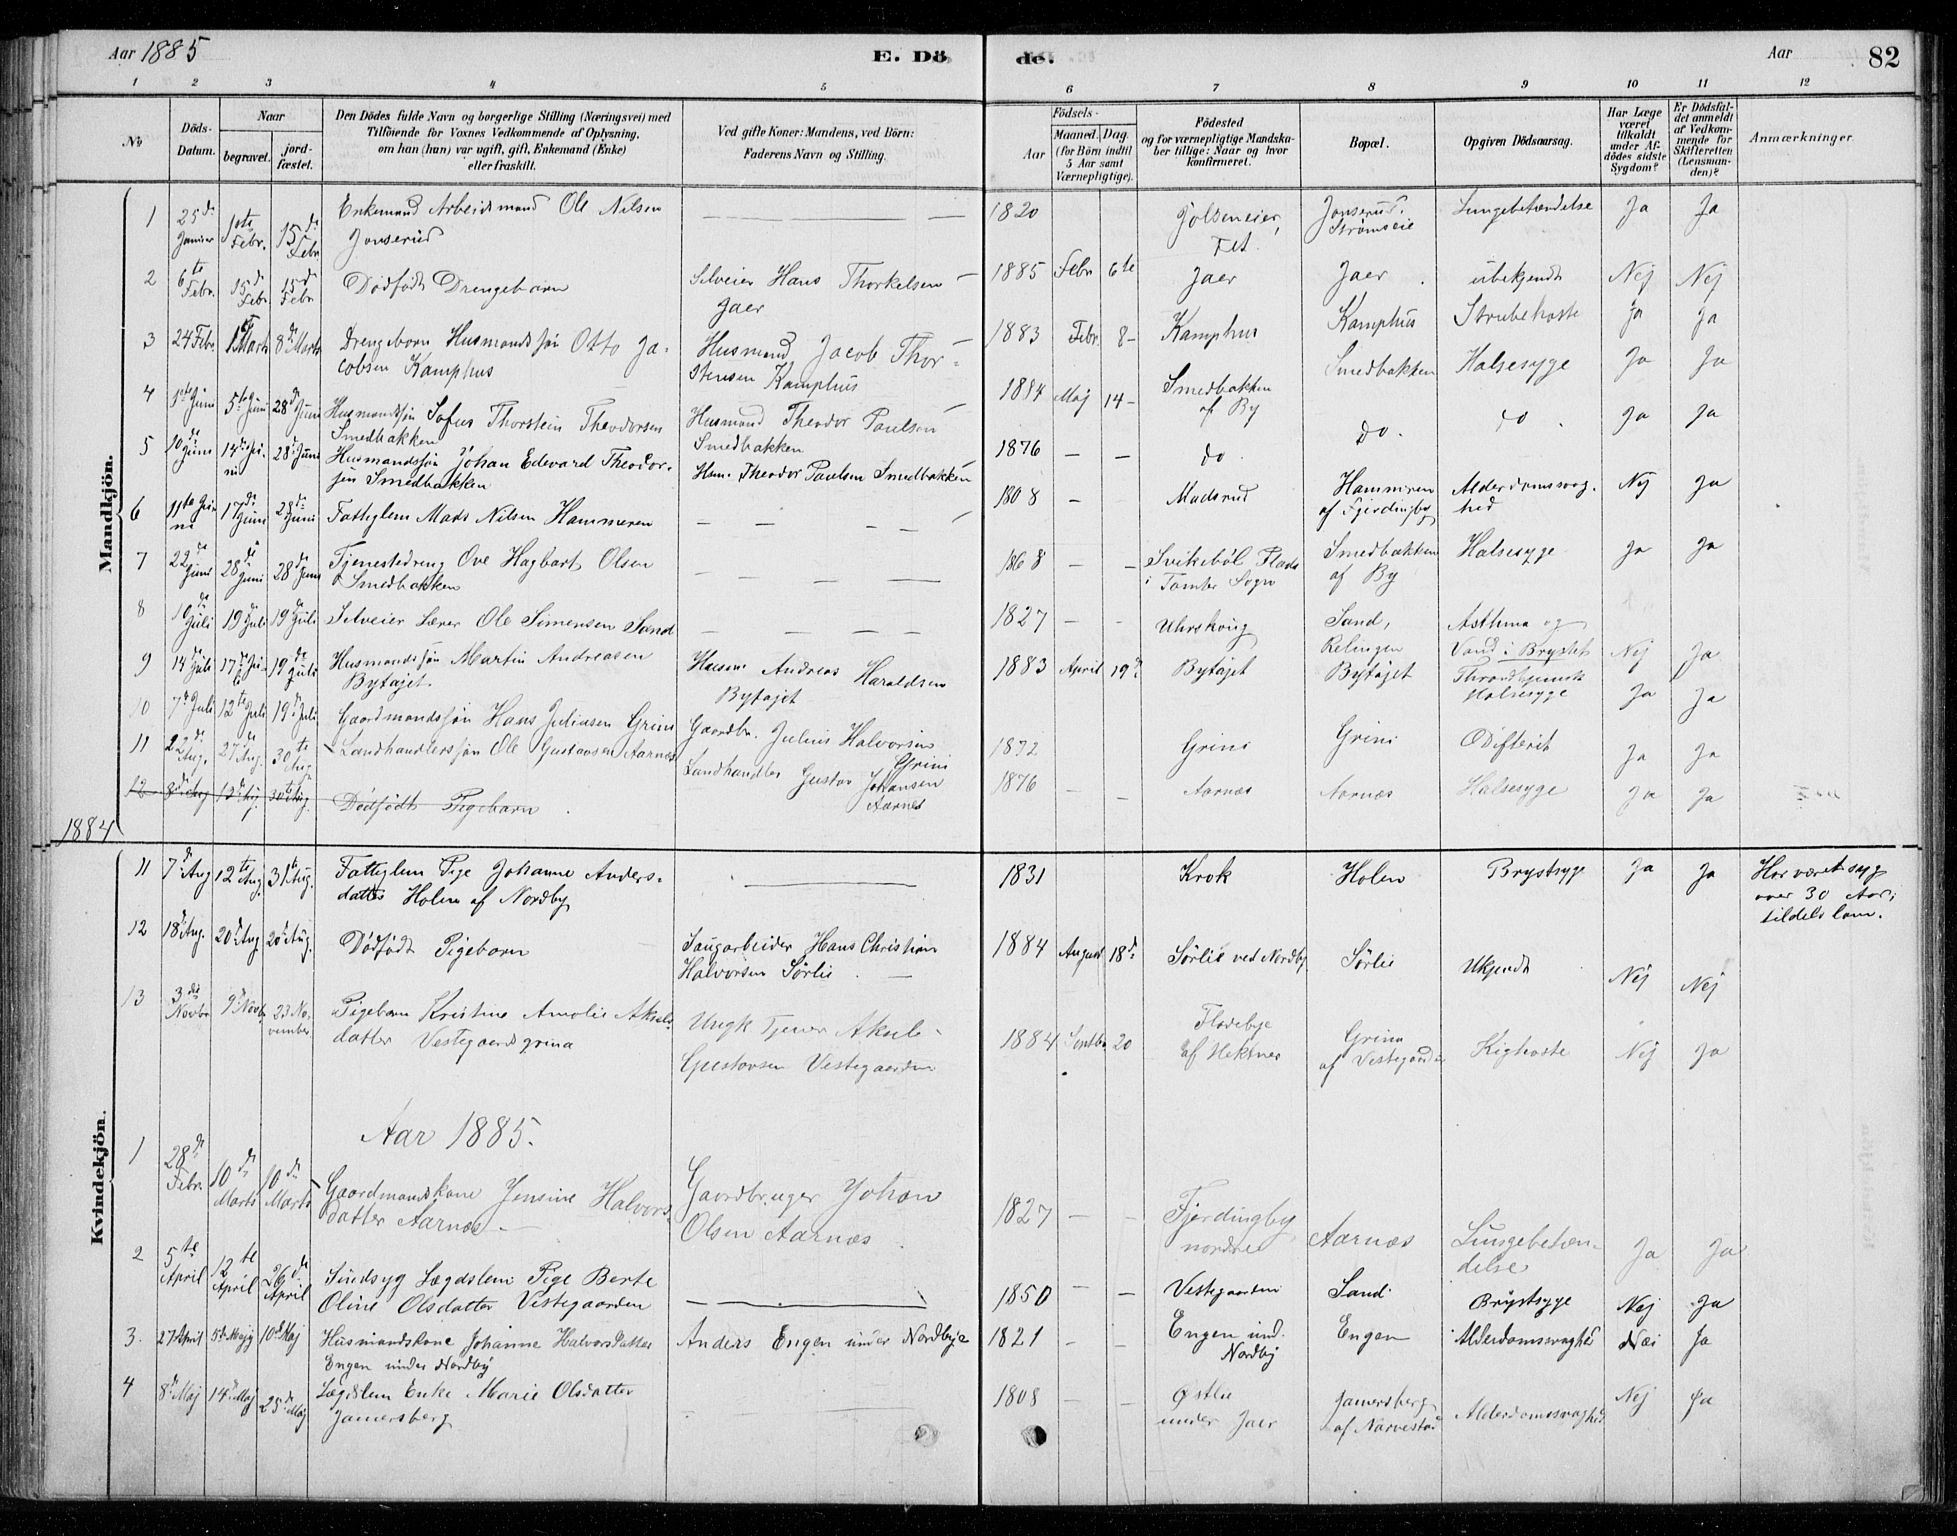 Aar 1885
E. Dö
de.
Aar
82
1 2 3 4 5 6 7 8 9 10 11 12
No
Döds-Datum.
Naar
begravet.
jord-fæstet.
Den Dödes fulde Navn og borgerlige Stilling (Næringsvei) med
Tilföiende for Voxnes Vedkommende af Oplysning,
om han (hun) var ugift, gift, Enkemand (Enke)
eller fraskilt.
Ved gifte Koner: Mandens, ved Börn:
Faderens Navn og Stilling.
Födsels-
Aar
Maaned. Dag.
(for Börn indtil
5 Aar samt
Værnepligtige).
Födested
og for værnepligtige Mandska-
ber tillige: Naar og hvor
konfirmeret.
Bopæl.
Opgiven Dödsaarsag.
Har Læge
været
tilkaldt
under Af-
dödes sidste
Sygdom?
Er Dödsfal-
det anmeldt
af Vedkom-
mende for
Skifteretten
(Lensman-
den)?
Anmærkninger
Mandkjön.
1 25de Januar 10te Febr. 15de Febr. Enkemand Arbeidsmand Ole Nilsen
Jonserud
1820 Fet. Jonserud, Strømseie Lungebetændelse Ja Ja
2 6te Febr. 15de Febr. 15de Febr Dødfødt Drengebarn
Selveier Hans Thorkelsen
Jaer
1885 Febr 6te Jaer Jaer ubekjendt Nej Nej
3 24 Febr. 1ste Marts 8de Marts Drengebarn Husmandssøn Otto Ja-
cobsen Kamphus
Husmand Jacob Thor-
stensen Kamphus
1883 Febr. 8 Kamphus Kamphus Strubehoste Ja Ja
4 1ste Juni 5te Juni 28de Juni Husmandssøn Sofus Thorstein Theodorsen
Smedbakken
Husmand Theodor Paulsen
Smedbakken
1884 Maj 14 Smedbakken
af By
Smedbakken Halsesyge Ja Ja
5 10de Juni 14de Ju-
ni 28de Juni Husmandssøn Johan Edevard Theodor-
sen Smedbakken
Husm. Theodor Paulsen Smedbakken
1876 do do. do. Ja Ja
6 11te Ju-
ni 17de Juni 28de Juni Fattiglem Mads Nilsen Hammeren
1808 Madsrud Hammeren
af Fjerdingby
Alderdomssvag-
hed
Nej Ja
7 22de Juni 28de Juni 28de Juni Tjenestedreng Ove Hagbart Olsen
Smedbakken
1868 Svikebøl
i Tomter Sogn
Smedbakken
af By
Halsesyge Ja Ja
8 10de Juli 19 Juli 19de Juli Selveier Lærer Ole Simensen Sand
1827 Uhrskoug Sand,
Relingen
Asthma og
Vand i Brystet
Nej Ja
9 14de Juli 17de Ju-
li 19de Juli Husmandssøn Martin Andreasen
Bytajet
Husm Andreas Haraldsen
Bytajet
1883 April 19de Bytøjet Bytøjet Throndhjemsk
Halsesyge
Ja Ja
10 7de Juli 12te Juli 19de Juli Gaardmandssøn Hans Juliusen Grini
Gaardbr. Julius Halvorsen
Grini
1872 Grini Grini Difterit Ja Ja
11 22de Aug. 27de Aug. 30te Aug Landhandlerssøn Ole Gustavsen Aarnes
Landhandler Gustav Johansen
Aarnes
1876 Aarnæs Aarnæs Halsesyge Ja Ja
12 8de Aug 30te Aug. Dødfødt Pigebarn
1884
Kvindekjön.
11 7de Aug 12te Aug 31te Aug. Fattiglem Pige Johanne Anders-
datter Holen af Nordby
1831 Krok Holen Brystsyge Ja Ja
Har været syg
over 30 Aar;
tildels lam.
12 18de Aug. 20de Aug 20de Aug. Dødfødt Pigebarn
Saugarbeider Hans Christian
Halvorsen Sørlie
1884 August 18de Sørlie ved Nordby Sørlie Ukjendt Nej Nej
13 3die Novbr 9de Novbr 23 No-
vember Pigebarn Kristine Amalie Aksels-
datter Vestegaardsgrina
Ungk Tjener Aksel
Gustavsen Vestegaarden
1884 Septbr 20 Fladebye
af Hektner
Grina
af Vestegaarden
Kighoste Nej Ja
Aar 1885.
1 28de Febr. 10de Marts 10de Marts Gaardmandskone Jensine Halvors-
datter Aarnæs
Gaardbruger Johan
Olsen Aarnæs
1827 Fjerdingby
nordre
Aarnæs Lungebetæn-
delse
Ja Ja
2 5te April 12te April 26de April Sindsyg Lægdslem Pige Berte
Oline Olsdatter Vestegaarden
1850 Vestegaarden Sand Brystsyge Nej Ja
3. 27 April 5de Majj 10de Maj Husmandskone Johanne Halvorsdatter
Engen under Nordby
Anders Engen under Nordbye
1821 Engen und.
Nordby
Engen Alderdomssvaghed Nei Ja
4 8de Maj 14de Maj 25de Maj Lægdslem Enke Marie Olsdatter
Jamersberg
1808 Østlie
under Jaer
Jamersberg
af Narvestad
Alderdomssvaghed Nej Ja